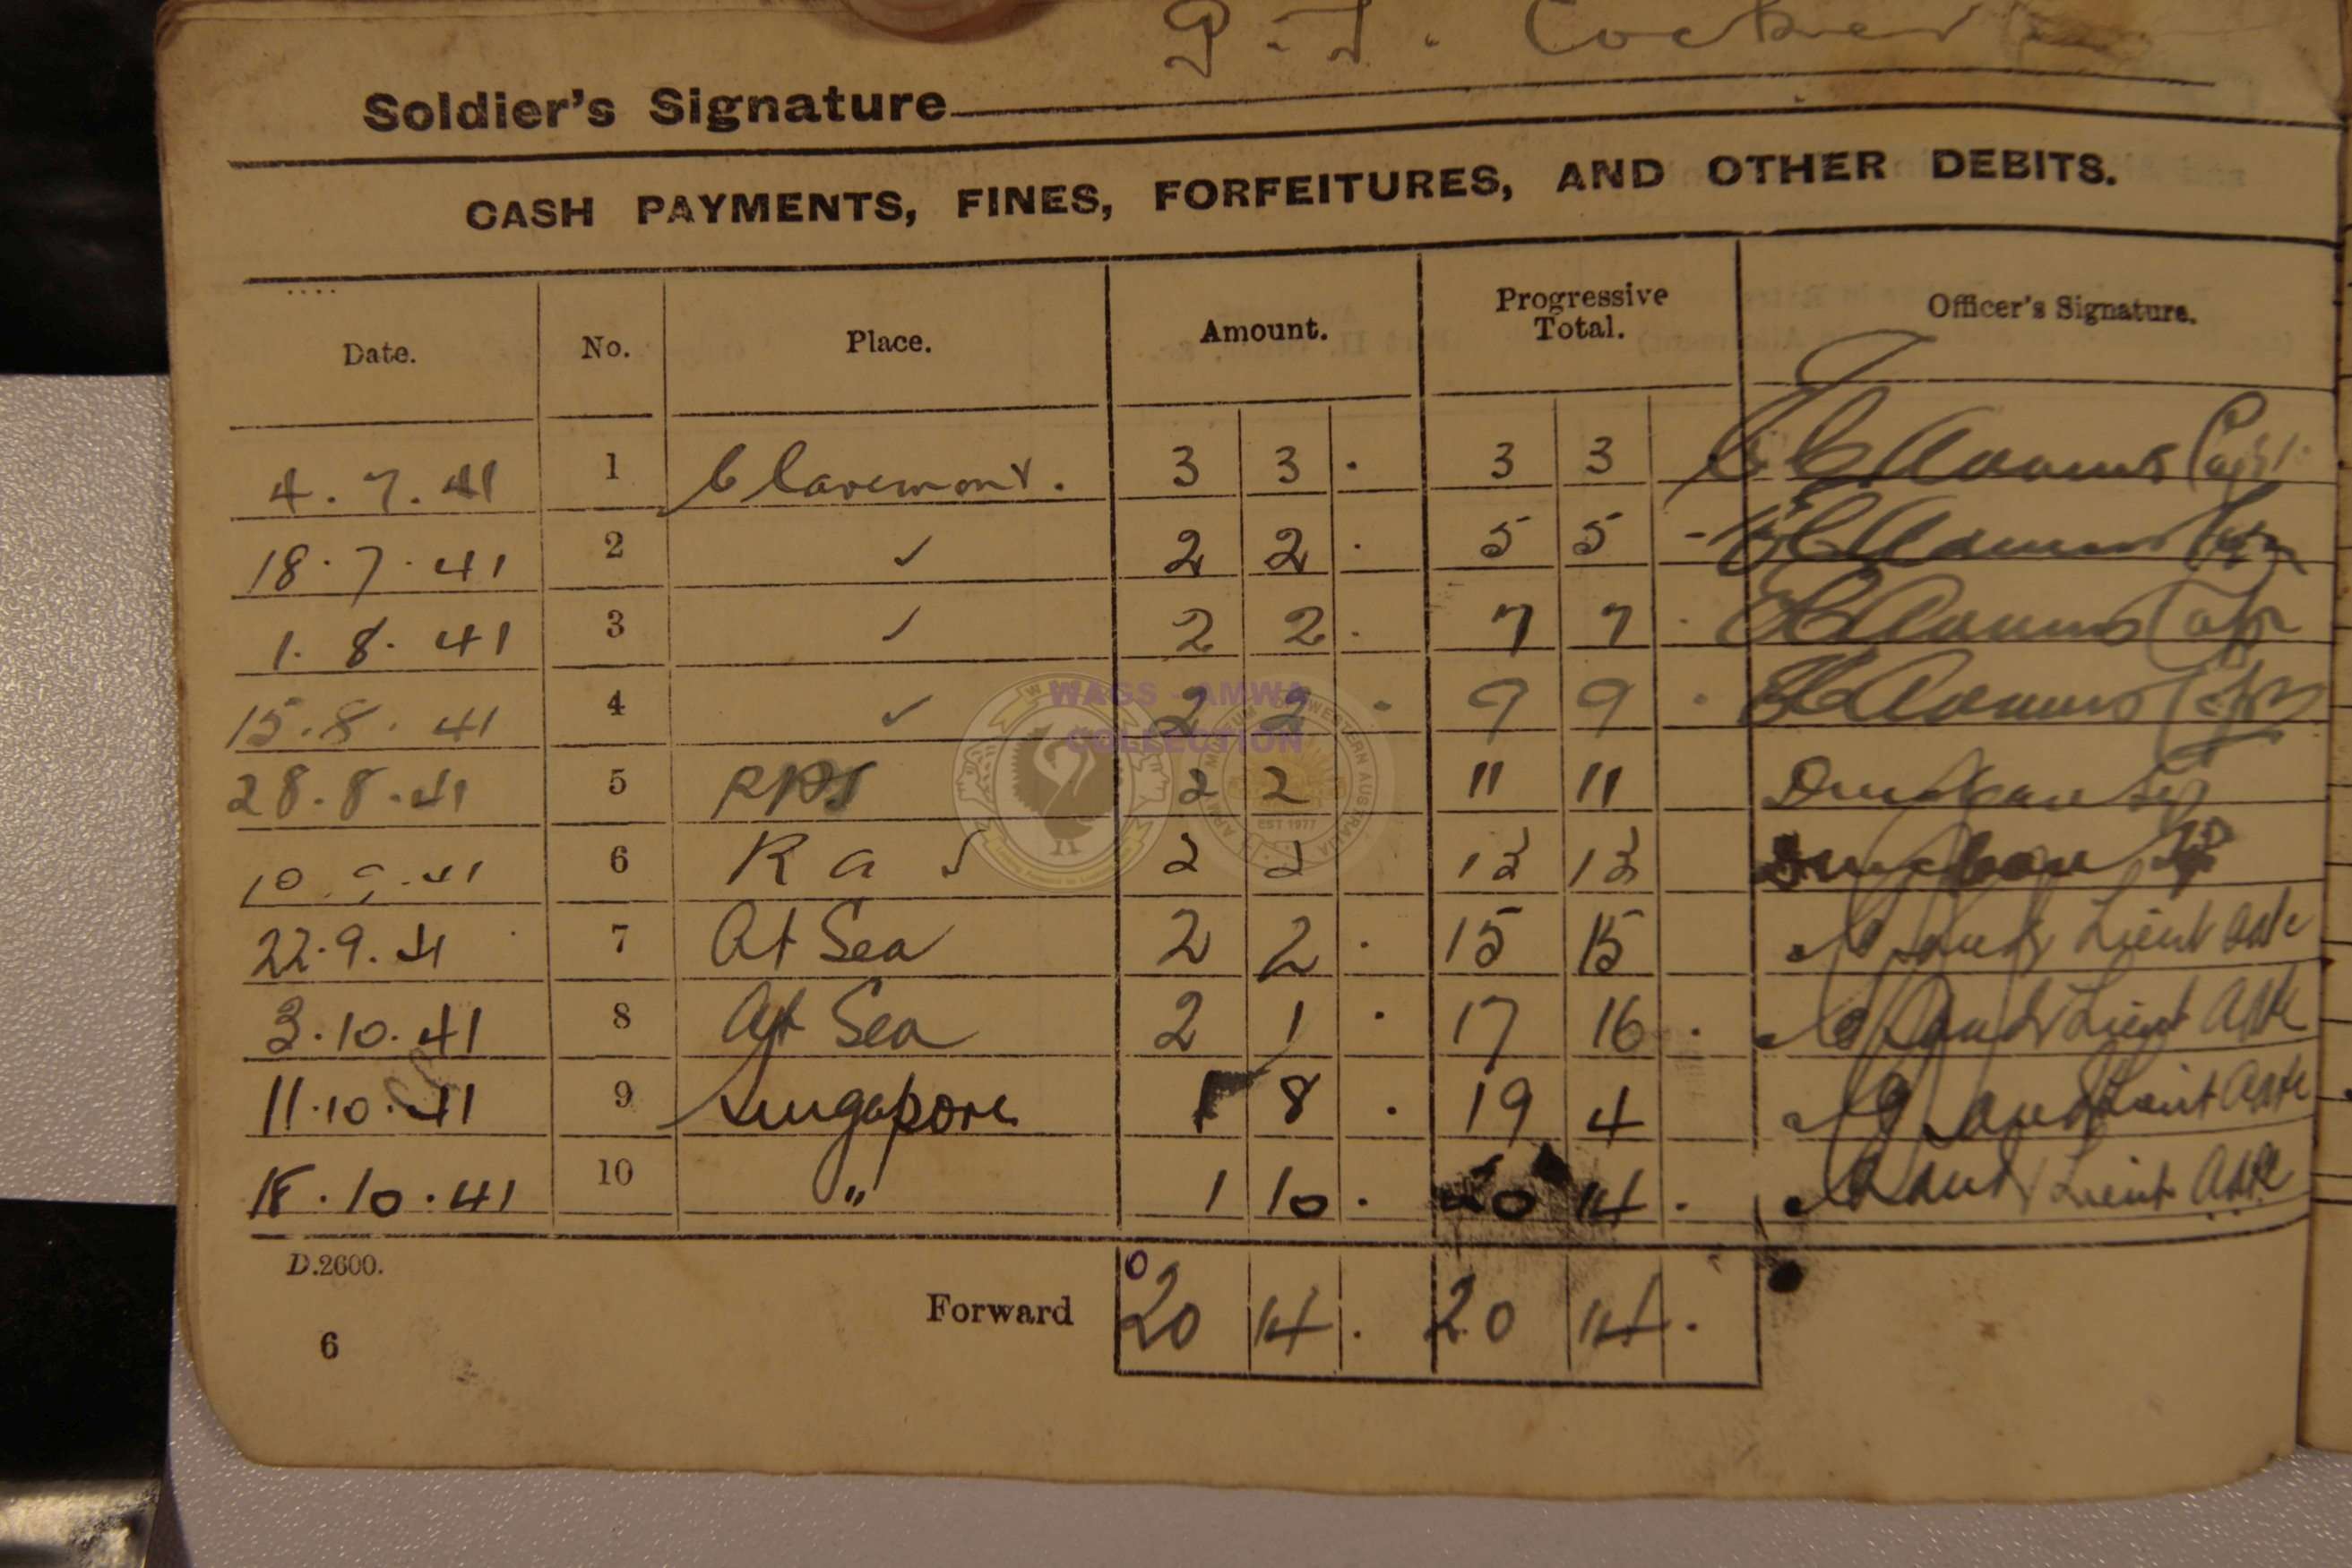 P. J. Cocker
Soldier's Signature
CASH PAYMENTS, FINES, FORFEITURES, AND OTHER DEBITS.
Date. No. Place. Amount. Progressive Total. Officer's Signature.
4.7.41 1 Claremont. 3 3 . 3 3 Capt.
18.7.41 2 ✓ 2 2 . 5 5 -
1.8.41 3 ✓ 2 2 . 7 7 .
15.8.41 4 ✓ 2 2 . 9 9 .
28.8.41 5 2 2 11 11
10.9.41 6 2 2 13 13
22.9.41 7 At Sea 2 2 . 15 15 Lieut
3.10.41 8 At Sea 2 1 . 17 16 . Lieut
11.10.41 9 Singapore 1 8 . 19 4 Lieut
18.10.41 10 " 1 10 . 20 14 . Lieut
D.2600.
Forward 20 14 . 20 14 .
6
WAGS - AMWA
COLLECTION
EST 1977